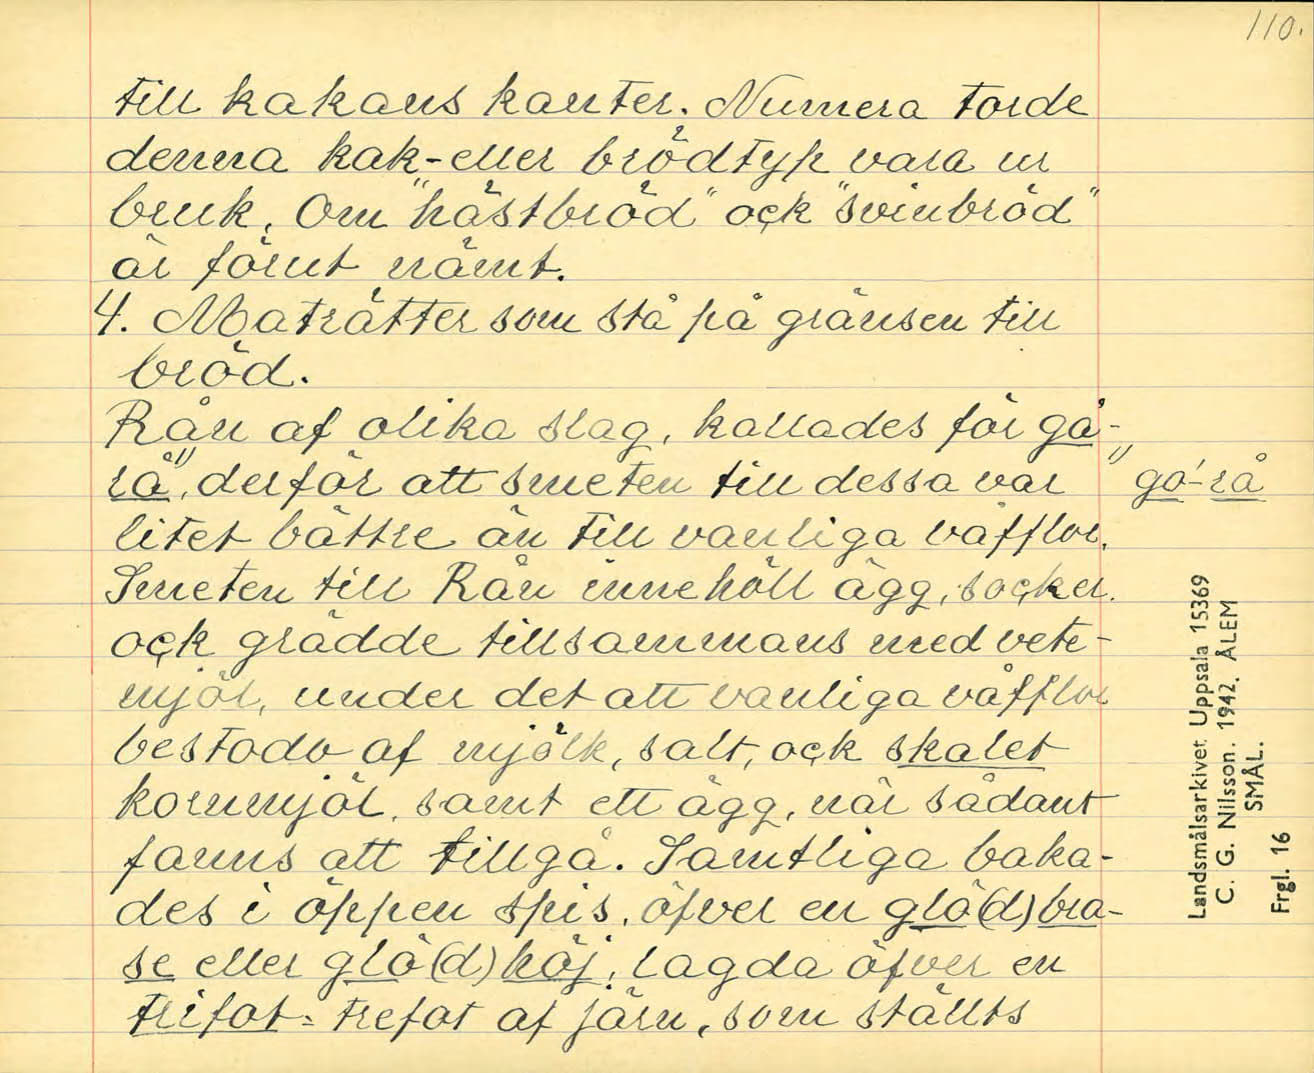 110.
till kakans kanter. Numera torde
denna kak- eller brödtyp vara ur
bruk. Om "hästbröd" ock "svinbröd"
är förut nämt.
4. Maträtter som stå på gränsen till
bröd.
Rån af olika slag, kallades för gå-
rå", derför att smeten till dessa var
"gó-rå
litet bättre än till vanliga våfflor.
Smeten till Rån innehöll ägg, socker.
ock grädde tillsammans med vete-
mjöl, under det att vanliga våfflor
bestodo af mjölk, salt, ock skalet
kornmjöl, samt ett ägg, när sådant
fanns att tillgå. Samtliga baka-
des i öppen spis, öfver en glö(d)bra-
se eller glö(d)höj, lagda öfver en
trifot = trefot af järn, som ställts
Landsmålsarkivet Uppsala 15369
C. G. Nilsson. 1942. ÅLEM
SMÅL.
Frgl. 16